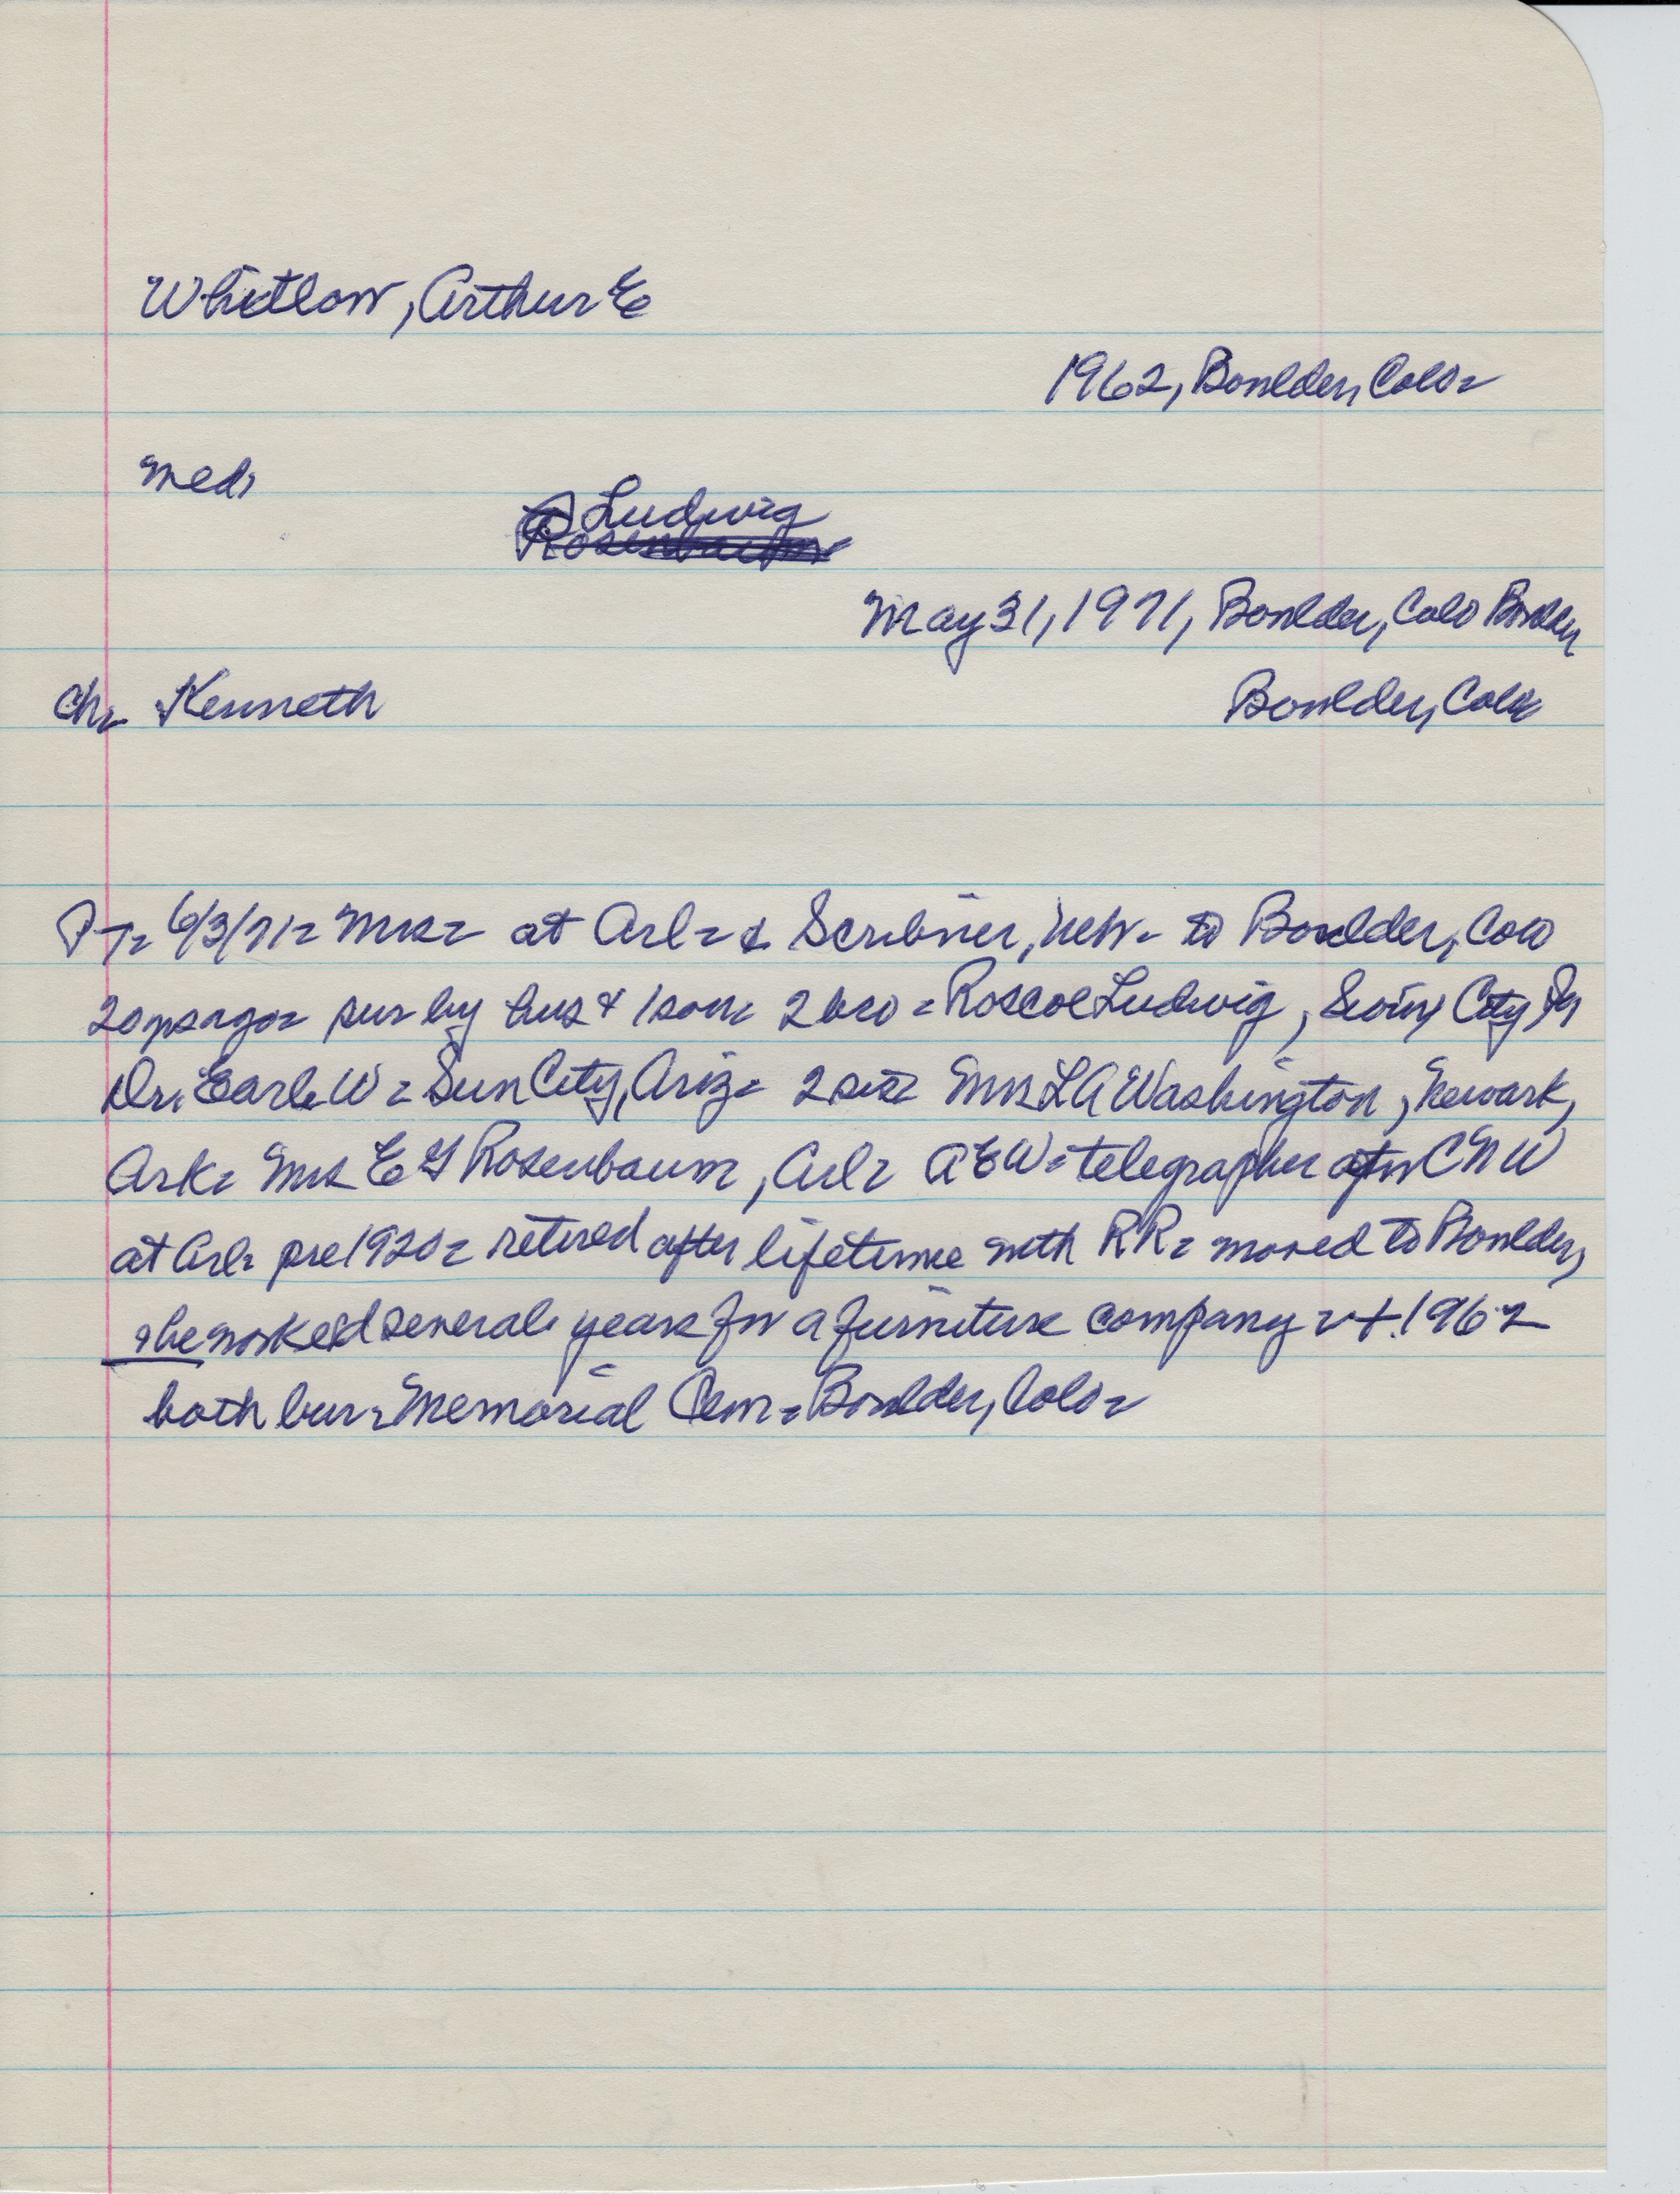 Whitlow, Arthur E
1962, Boulder, Colo=
Med.
Ludwig
May 31, 1971, Boulder, Colo Boulder
Ch= Kenneth Boulder, Colo
PT= 6/3/71= Mrs= at Arl= & Scribner, Neb= to Boulder, Colo
20 yrs ago= sur by hus & 1 son= 2 bro= Roscoe Ludwig, Sioux City, Ia
Dr. Earl W= Sun City, Ariz= 2 sis= Mrs L A Washington, Newark,
Ark= Mrs E G Rosenbaum, Arl= A E W= telegrapher for C N W
at Arl= pre 1920= retired after lifetime with RR= moved to Boulder,
she worked several years for a furniture company 1962
both bur= Memorial Cem= Boulder, Colo=